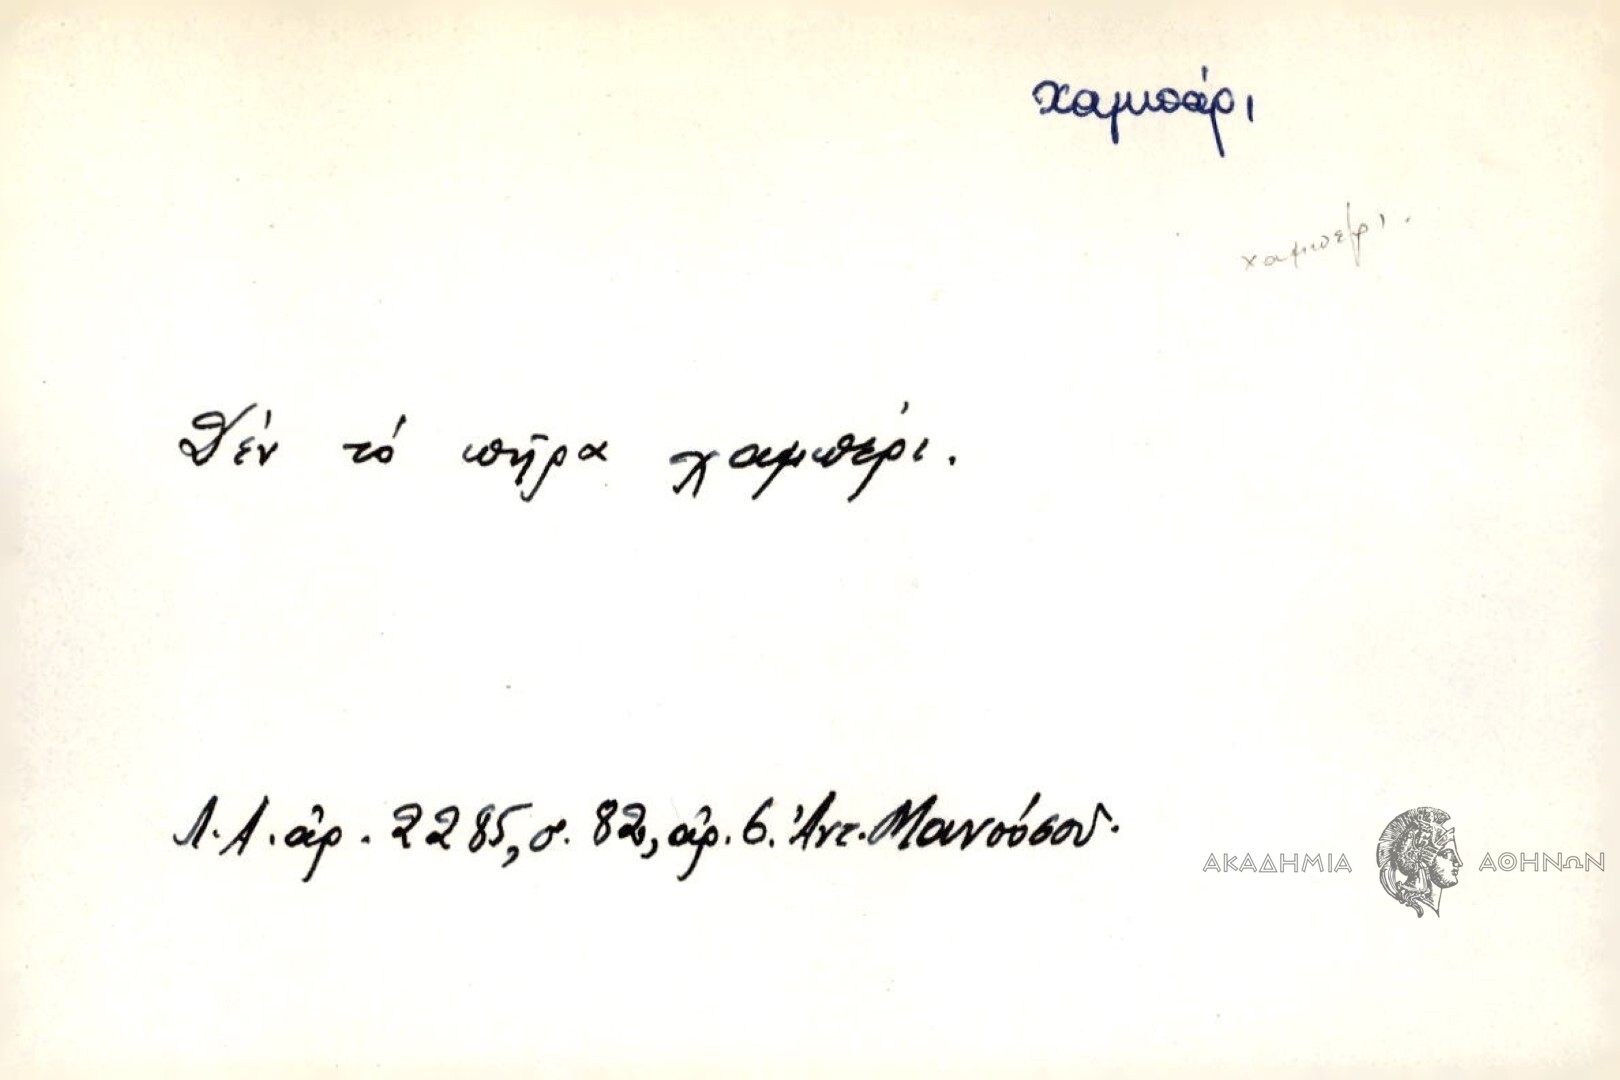 χαμπάρι
χαμπέρι.
Δέν τό πῆρα χαμπέρι.
Λ.Α. ἀρ. 2285, σ. 82, ἀρ. 6. Ἀντ. Μανούσου.
ΑΚΑΔΗΜΙΑ ΑΘΗΝΩΝ